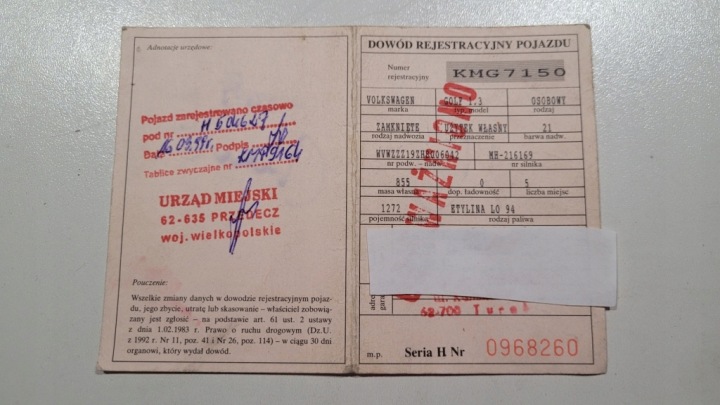 Adnotacje urzędowe:
Pojazd zarejestrowano czasowo
pod nr
Podpis
Tablice zwyczajne nr
URZĄD MIEJSKI
62-635 PRZEDECZ
woj. wielkopolskie
Pouczenie:
Wszelkie zmiany danych w dowodzie rejestracyjnym pojaz-
du, jego zbycie, utratę lub skasowanie – właściciel zobowią-
zany jest zgłosić – na podstawie art. 61 ust. 2 ustawy
z dnia 1.02.1983 r. Prawo o ruchu drogowym (Dz.U.
z 1992 r. Nr 11, poz. 41 i Nr 26, poz. 114) – w ciągu 30 dni
organowi, który wydał dowód.
DOWÓD REJESTRACYJNY POJAZDU
Numer
rejestracyjny KMG7150
VOLKSWAGEN GOLF 1.3 OSOBOWY
marka typ, model rodzaj
ZAMKNIĘTE UŻYTEK WŁASNY 21
rodzaj nadwozia przeznaczenie barwa nadw.
MH-216169
nr podw. – nadw. nr silnika
855 0 5
masa własna dop. ładowność liczba miejsc
1272 ETYLINA LO 94
pojemność silnika rodzaj paliwa
UNIEWAŻNIONO
62-700 Turek
m.p. Seria H Nr 0968260